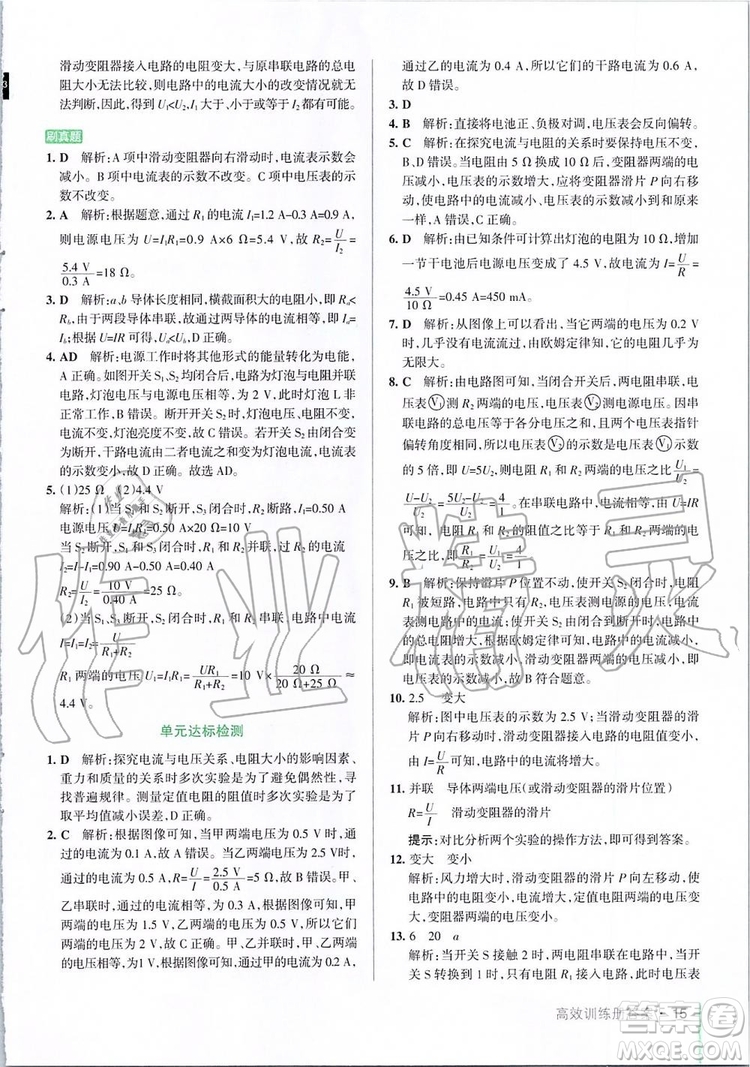 滑动变阻器接入电路的电阻变大，与原串联电路的总电
阻大小无法比较，则电路中的电流大小的改变情况就无
法判断，因此，得到 U₁<U₂，I₁ 大于、小于或等于 I₂ 都有可能。
刷真题
1. D 解析：A 项中滑动变阻器向右滑动时，电流表示数会
减小。B 项中电流表的示数不改变。C 项中电压表的示
数不改变。
2. A 解析：根据题意，通过 R₁ 的电流 I₁=1.2 A-0.3 A=0.9 A，
则电源电压为 U=I₁R₁=0.9 A×6 Ω=5.4 V，故 R₂=U/I₂=
5.4 V/0.3 A=18 Ω。
3. D 解析：a、b 导体长度相同，横截面积大的电阻小，即 Rₐ<
R_b，由于两段导体串联，故通过两导体的电流相等，即 Iₐ=
I_b；根据 U=IR 可得，Uₐ<U_b，D 正确。
4. AD 解析：电源工作时将其他形式的能量转化为电能，
A 正确。如图开关 S₁、S₂ 均闭合，电路为灯泡与电阻并联
电路，灯泡电压与电源电压相等，为 2 V，此时灯泡 L 非
正常工作，B 错误。断开开关 S₂ 时，灯泡电压、电阻不变，
电流不变，灯泡亮度不变，故 C 错误。若将开关 S₂ 由闭合
变为断开，干路电流由二者电流之和变为灯泡电流，电流
表的示数变小，故 D 正确。故选 AD。
5. (1)25 Ω (2)4.4 V
解析：(1)当 S₁、S₂ 断开，S₃ 闭合时，R₂ 断路，I₁=0.50 A
电源电压为 U=I₁R₁=0.50 A×20 Ω=10 V
当 S₂ 断开，S₁、S₃ 闭合时，R₁ 和 R₂ 并联，此时电流表示数
I₂=I-I₁=0.90 A-0.50 A=0.40 A
R₂=U/I₂=10 V/0.40 A=25 Ω。
(2)当 S₁、S₃ 断开，S₂ 闭合时，R₁ 和 R₂ 串联，电路中电流
I=I₁=I₂=U/(R₁+R₂)
R₁ 两端电压为 U₁=I₁R₁=UR₁/(R₁+R₂)=10 V×20 Ω/(20 Ω+25 Ω)≈
4.4 V。
单元达标检测
1. D 解析：探究电流与电压关系、电阻大小的影响因素、
重力和质量的关系时多次实验是为了避免偶然性，寻
找普遍规律。测量定值电阻的阻值时多次实验是为了
取平均值减小误差，D 正确。
2. C 解析：根据图像可知，当甲两端电压为 0.5 V 时，通过
的电流为 0.1 A，故 A 错误。当乙两端电压为 2.5 V 时，
通过的电流为 0.5 A，则 R=U/I=2.5 V/0.5 A=5 Ω，故 B 错误。甲、
乙串联时，通过的电流相等，为 0.3 A 时，根据图像可知
甲两端电压为 1.5 V，乙两端的电压为 0.5 V，则电源电
压为 2 V，故 C 正确。甲、乙并联时，甲、乙两端的电压相
等，均为 1 V，根据图像可知，此时通过甲的电流为 0.2 A，
通过乙的电流为 0.4 A，所以它们的干路电流为 0.6 A，
故 D 错误。
3. D
4. B 解析：直接将电池正、负极对调，电压表会反向偏转。
5. A 解析：在探究电流与电阻的关系时要保持电阻两端
电压不变。当电阻由 5 Ω 换成 10 Ω 后，变阻器两端的电
压减小，电阻两端的电压增大，应将变阻器的滑片 P 向右移
动，使电路中的电流减小、电压表的示数减小到和原来
一样，A 正确，C 错误。
6. D 解析：由已知条件可计算出灯泡的电阻为 10 Ω，增加
一节干电池后电源电压变成了 4.5 V，故最大电流 I=U/R=
4.5 V/10 Ω=0.45 A=450 mA。
7. D 解析：从图像上可以看出，当它两端的电压为 0.2 V
时，几乎没有电流流过，由欧姆定律知，它的电阻几乎为
无限大。
8. C 解析：由电路图可知，当闭合开关后，两电阻串联，电
压表V₁测 R₂ 两端的电压，电压表V₂测电源的电压。因串
联电路的总电压等于各分电压之和，且两个电压表指针
偏转角度相同，所以电压表V₂的示数是电压表V₁示数
的 5 倍，即 U=5U₂，则电阻 R₁ 和 R₂ 两端的电压之比 U₁/U₂
=(U-U₂)/U₂=(5U₂-U₂)/U₂=4/1。在串联电路中，电流相等，根据 I=U/R
可知，电阻 R₁、R₂ 的阻值之比等于两端的电压之比，为
4:1。
9. B 解析：保持滑片 P 位置不动，使开关 S₂ 由断开到闭合，电阻
R₁ 被短路，电压表测电源电压，示数变大；电流表测
电路中的电流；使开关 S₂ 由闭合到断开时，电路中的总
电阻增大，根据欧姆定律可知，电路中的电流减小，电流
表和电压表的示数均减小，故 B 符合题意。
10. 2.5 变大
解析：图中电压表的示数为 2.5 V；当滑动变阻器的滑
片 P 向左移动时，滑动变阻器接入电路的阻值变小，由
I=U/R可知，电阻变小，电路中的电流将增大。
11. 并联 导体两端电压(或滑动变阻器的滑片位置)
R=U/I 滑动变阻器的滑片
提示：对比分析两个实验的操作方法，即可以得出答案。
12. 变大 变小
解析：风力增大时，滑动变阻器的滑片 P 向左移动，接
入电路的电阻变小，电流变大，定值电阻两端电压变大，
滑动变阻器两端的电压变小。
13. 6 20 a
解析：当开关 S 接触 2 时，两电阻串联在电路中，当开
关 S 转换到 1 时，只有电阻 R₁ 接入电路，此时电压表
高效训练册答案·15
作业精灵
答案圈
MXQE.COM